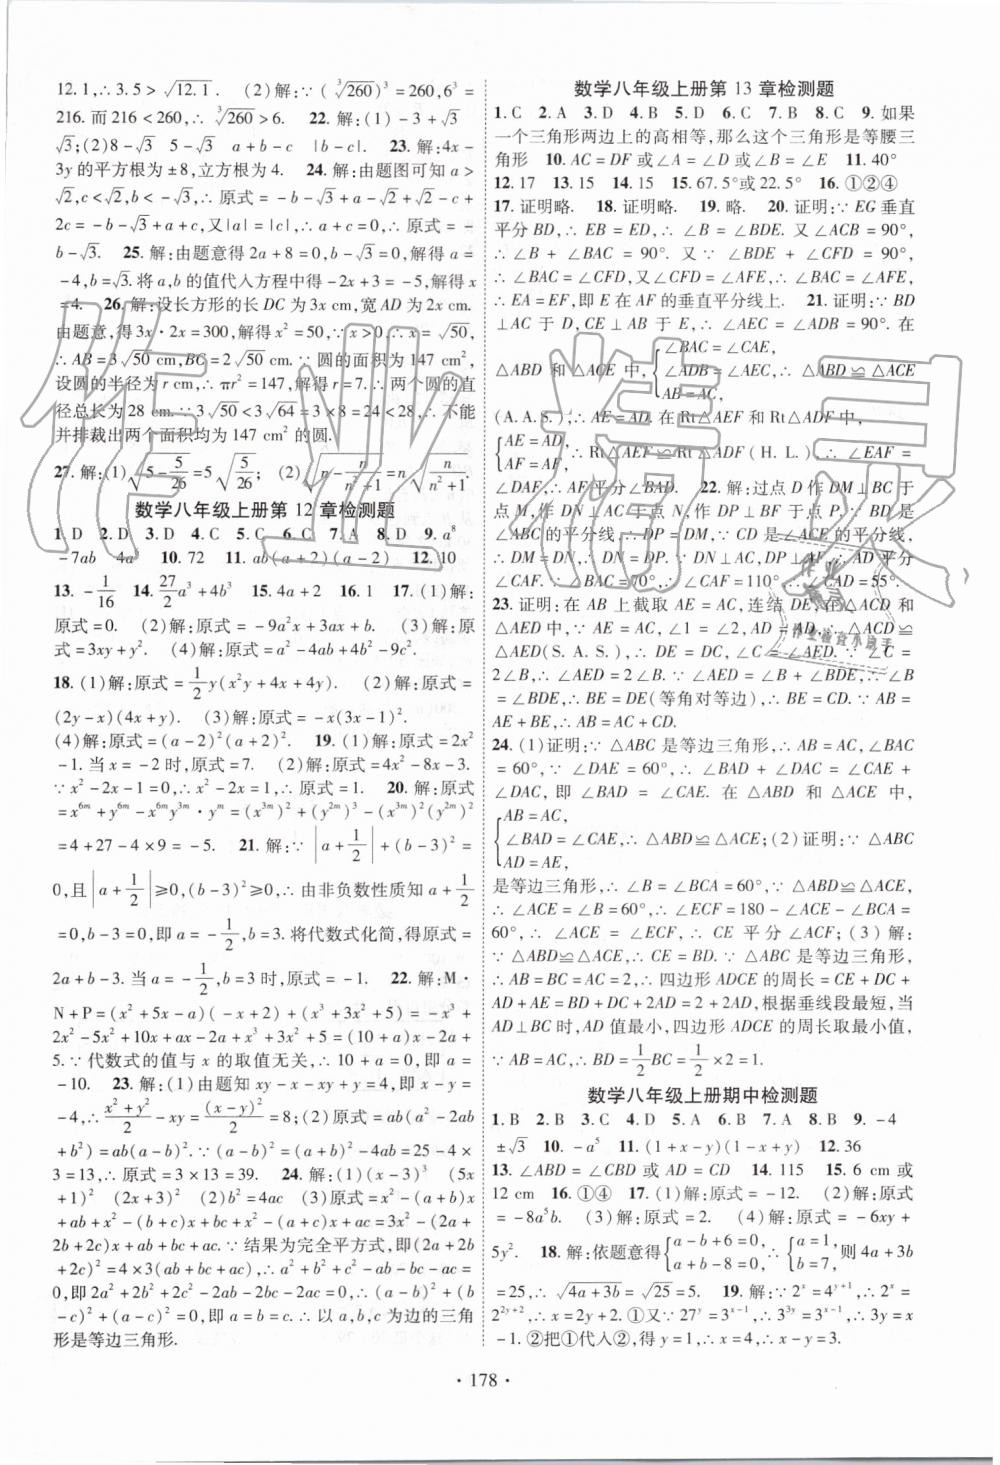 12.1,∴3.5>√12.1. (2)解:∵(∛260)³=260,6³=
216.而216<260,∴∛260>6. 22.解:(1)-3+√3
√3;(2)8-√3 5-√3 a+b-c |b-c|. 23.解:4x-
3y的平方根为±8,立方根为4. 24.解:由题图可知a>
√2,c<√2,b<-√3,∴原式=-b-√3+a-√2+√2-c+
2c=-b-√3+a+c,又|a|=|c|,∴a+c=0,∴原式=-
b-√3. 25.解:由题意得2a+8=0,b-√3=0,解得a=
-4,b=√3.将a,b的值代入方程中得-2x+3=-5,解得x
=4. 26.解:设长方形的长DC为3x cm,宽AD为2x cm.
由题意,得3x·2x=300,解得x²=50,∵x>0,∴x=√50,
∴AB=3√50 cm,BC=2√50 cm.∵圆的面积为147 cm²,
设圆的半径为r cm,∴πr²=147,解得r=7.∴两个圆的直
径总长为28 cm.∵3√50<3√64=3×8=24<28,∴不能
并排裁出两个面积均为147 cm²的圆.
27.解:(1)√(5-5/26)=5√(5/26); (2)√(n-n/(n²+1))=n√(n/(n²+1)).
数学八年级上册第12章检测题
1.D 2.D 3.D 4.C 5.C 6.C 7.A 8.D 9.a⁸
-7ab 4a 10.72 11.ab(a+2)(a-2) 12.10
13.-1/16 14.27/2a³+4b³ 15.4a+2 16.1 17.(1)解:
原式=0. (2)解:原式=-9a²x+3ax+b. (3)解:
原式=3xy+y². (4)解:原式=a²-4ab+4b²-6c².
18.(1)解:原式=1/2y(x²y+4x+4y). (2)解:原式=
(2y-x)(4x+y). (3)解:原式=-x(3x-1)².
(4)解:原式=(a-2)²(a+2)². 19.(1)解:原式=2x²
-1.当x=-2时,原式=7. (2)解:原式=4x²-8x-3.
∵x²-2x-1=0,∴x²-2x=1,∴原式=1. 20.解:原式
=x⁶ᵐ+y⁶ᵐ-x⁶ᵐy³ᵐ·yᵐ=(x³ᵐ)²+(y³ᵐ)²-(x³ᵐ)²(y²ᵐ)²
=4+27-4×9=-5. 21.解:∵|a+1/2|+(b-3)²=
0,且|a+1/2|≥0,(b-3)²≥0,∴由非负数性质知a+1/2
=0,b-3=0,即a=-1/2,b=3.将代数式化简,得原式=
2a+b-3.当a=-1/2,b=3时,原式=-1. 22.解:M·
N+P=(x²+5x-a)(-x+2)+(x³+3x²+5)=-x³+
2x²-5x²+10x+ax-2a+x³+3x²+5=(10+a)x-2a+
5.∵代数式的值与x的取值无关,∴10+a=0,即a=
-10. 23.解:(1)由题知xy-x-xy+y=4,即x-y=
-4,∴(x²+y²)/2-xy=(x-y)²/2=8;(2)原式=ab(a²-2ab
+b²)=ab(a-b)².∵(a-b)²=(a+b)²-4ab=25-4×
3=13,∴原式=3×13=39. 24.解:(1)(x-3)³ (5x
+1)² (2x+3)² (2)b²=4ac (3)原式=x²-(a+b)x
+ab+x²-(b+c)x+bc+x²-(a+c)x+ac=3x²-(2a+
2b+2c)x+ab+bc+ac.∵结果为完全平方式,即(2a+2b
+2c)²=4×3(ab+bc+ac),∴a²+b²+c²-ab-bc-ac=
0,即2a²+2b²+2c²-2ab-2bc-2ac=0,∴(a-b)²+(b
-c)²+(a-c)²=0,∴a=b=c.∴以a,b,c为边的三角
形是等边三角形.
数学八年级上册第13章检测题
1.C 2.A 3.D 4.B 5.D 6.C 7.B 8.C 9.如果
一个三角形两边上的高相等,那么这个三角形是等腰三
角形 10.AC=DF或∠A=∠D或∠B=∠E 11.40°
12.17 13.15 14.15 15.67.5°或22.5° 16.①②④
17.证明略. 18.证明略. 19.略. 20.证明:∵EG垂直
平分BD,∴EB=ED,∴∠B=∠BDE.又∠ACB=90°,
∴∠B+∠BAC=90°.∵∠BDE+∠CFD=90°,
∴∠BAC=∠CFD,又∠CFD=∠AFE,∴∠BAC=∠AFE,
∴EA=EF,即E在AF的垂直平分线上. 21.证明:∵BD
⊥AC于D,CE⊥AB于E,∴∠AEC=∠ADB=90°.在
△ABD和△ACE中,{∠BAC=∠CAE,
∠ADB=∠AEC,
AB=AC,
∴△ABD≌△ACE
(A.A.S.),∴AE=AD.在Rt△AEF和Rt△ADF中,
{AE=AD,
AF=AF,
∴Rt△AEF≌Rt△ADF(H.L.),∴∠EAF=
∠DAF,∴AF平分∠BAC. 22.解:过点D作DM⊥BC于
点M,作DN⊥AC于点N,作DP⊥BF于点P.∵CD是∠ACE
的平分线,BD是∠ABC的平分线,∴DP=DM,DM=DN,
∴DP=DN.∵DN⊥AC,DP⊥AF,∴AD平分
∠CAF.∵∠BAC=70°,∴∠CAF=110°,∴∠CAD=55°.
23.证明:在AB上截取AE=AC,连结DE,在△ACD和
△AED中,AC=AE,∠1=∠2,AD=AD,∴△ACD≌
△AED(S.A.S.),∴DE=CD,∠C=∠AED.∵∠C=
2∠B,∴∠AED=2∠B.∵∠AED=∠B+∠BDE,∴∠B
=∠BDE,∴BE=DE(等角对等边),∴BE=CD.∵AB=
AE+BE,∴AB=AC+CD.
24.(1)证明:∵△ABC是等边三角形,∴AB=AC,∠BAC
=60°,∵∠DAE=60°,∴∠BAD+∠DAC=∠CAE+
∠DAC,即∠BAD=∠CAE.在△ABD和△ACE中,
{AB=AC,
∠BAD=∠CAE,∴△ABD≌△ACE;(2)证明:∵△ABC
AD=AE,
是等边三角形,∴∠B=∠BCA=60°,∵△ABD≌△ACE,
∴∠ACE=∠B=60°,∴∠ECF=180-∠ACE-∠BCA=
60°,∴∠ACE=∠ECF,∴CE平分∠ACF;(3)解:
∵△ABD≌△ACE,∴CE=BD.∵△ABC是等边三角形,
∴AB=BC=AC=2,∴四边形ADCE的周长=CE+DC+
AD+AE=BD+DC+2AD=2+2AD,根据垂线段最短,当
AD⊥BC时,AD值最小,四边形ADCE的周长取最小值,
∵AB=AC,∴BD=1/2BC=1/2×2=1.
数学八年级上册期中检测题
1.B 2.B 3.C 4.D 5.A 6.B 7.A 8.B 9.-4
±√3 10.-a⁵ 11.(1+x-y)(1-x+y) 12.36
13.∠ABD=∠CBD或AD=CD 14.115 15.6 cm或
12 cm 16.①④ 17.(1)解:原式=-12. (2)解:原式
=-8a⁵b. (3)解:原式=2. (4)解:原式=-6xy+
5y². 18.解:依题意得{a-b+6=0,a+b-8=0,∴{a=1,b=7,则4a+3b
=25,∴√(4a+3b)=√25=5. 19.解:∵2ˣ=4ʸ⁺¹,∴2ˣ=
2²ʸ⁺²,∴x=2y+2.①又∵27ʸ=3ˣ⁻¹,∴3³ʸ=3ˣ⁻¹,∴3y=x
-1.②把①代入②,得y=1,∴x=4,∴x-y=3.
·178·